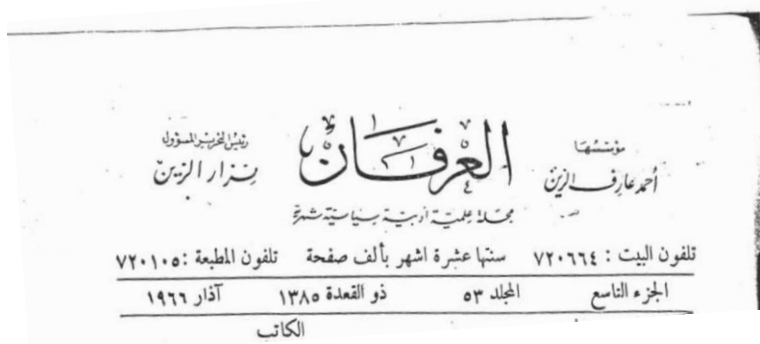 مؤسسها
أحمد عارف الزين
العرفان
رئيس التحرير المسؤول
نزار الزين
مجلة علمية أدبية سياسية شهرية
تلفون البيت : ٧٢٠٦٦٤ سنتها عشرة اشهر بألف صفحة تلفون المطبعة : ٧٢٠١٠٥
الجزء التاسع المجلد ٥٣ ذو القعدة ١٣٨٥ آذار ١٩٦٦
الكاتب